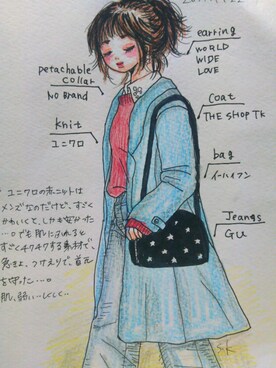 earring
WORLD
WIDE
LOVE
petachable
collar
NO Brand
coat
THE SHOP TK
knit
ユニクロ
bag
イーハイフン
Jeangs
GU
ユニクロの赤ニットは
メンズなのだけど、すごく
かわいくて、しかも安かった
…でも肌にふれると
すごくチクチクする素材で、
急きょ、つけえりで、首元
を守った…。
肌、弱い…しくしく…